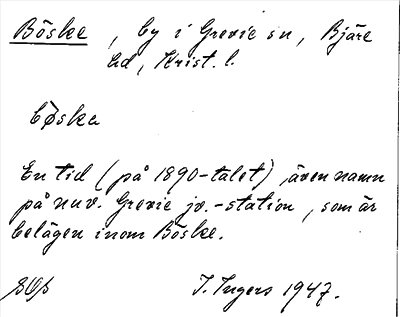 Böske, by i Grevie sn, Bjäre
hd, Krist. l.
bøska
En tid (på 1890-talet), även namn
på nuv. Grevie jv.-station, som är
belägen inom Böske.
I. Ingers 1947.